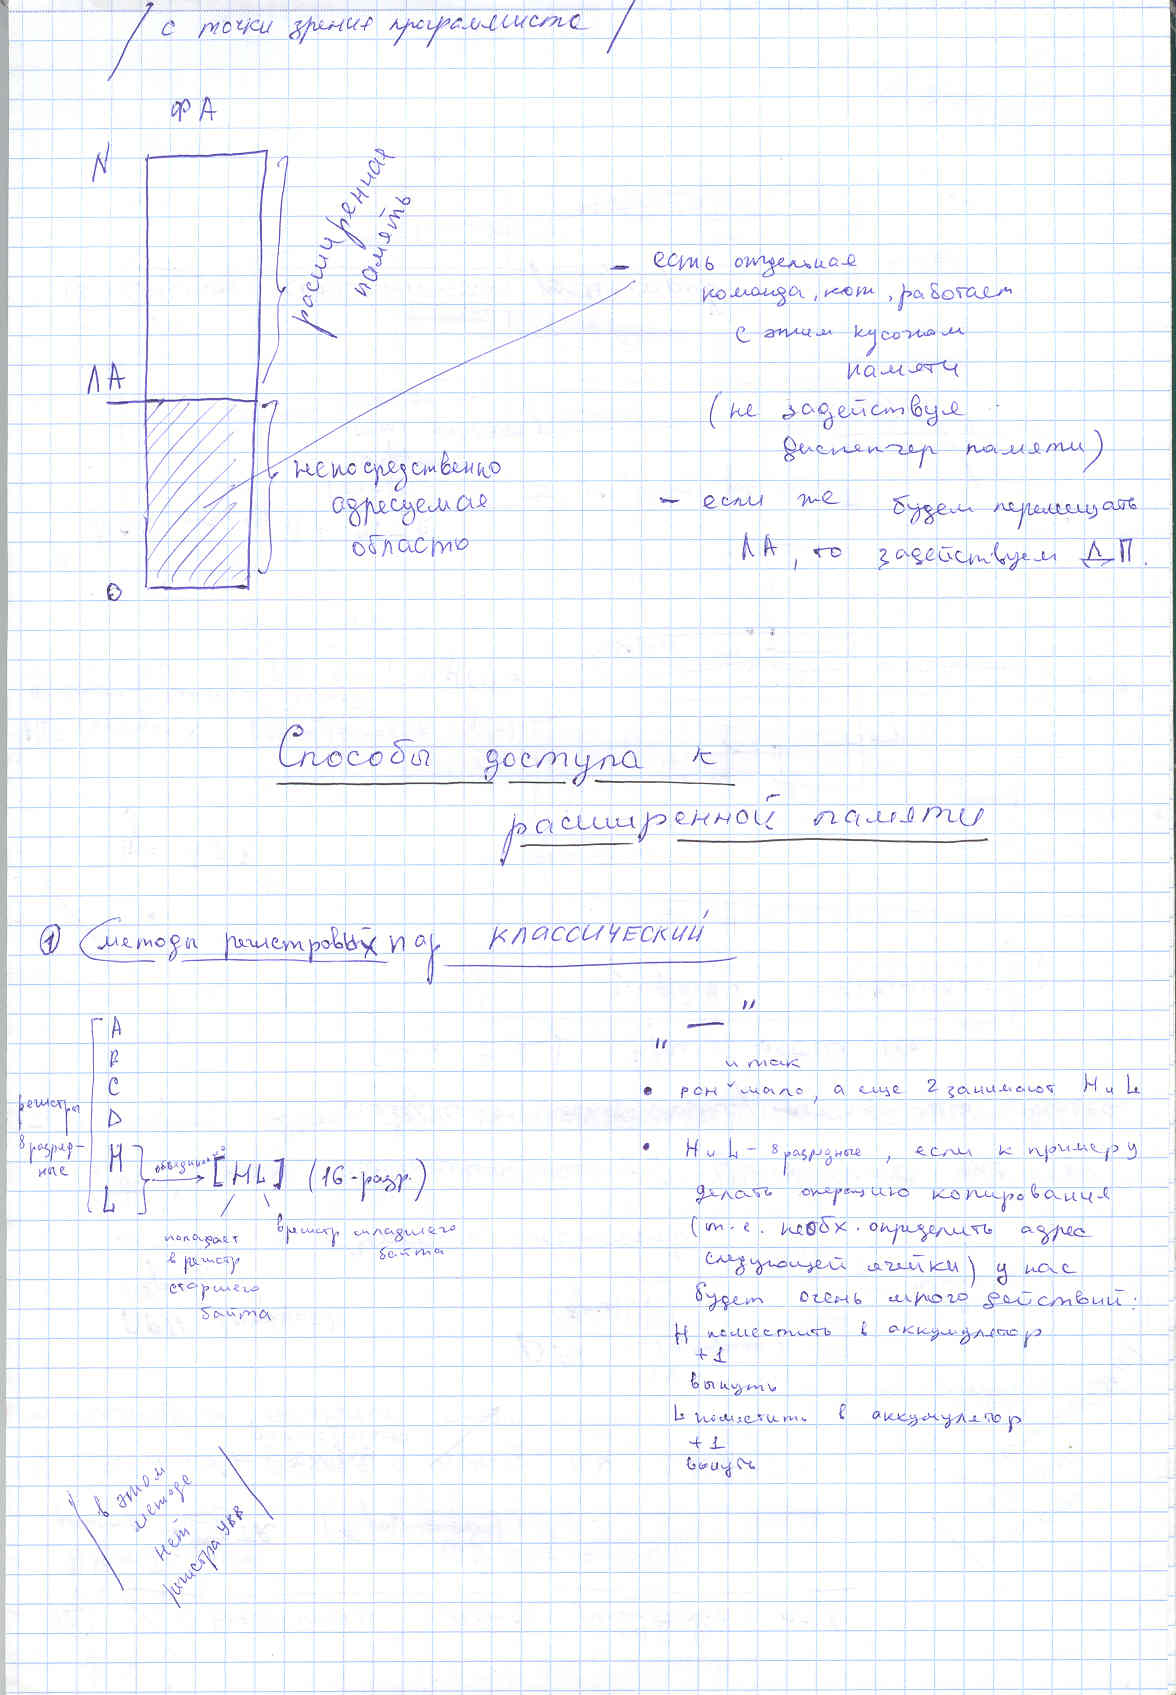 с точки зрения программиста
ФА
N
расширенная
память
ЛА
непосредственно
адресуемая
область
0
- есть отдельная
команда, кот. работает
с этим куском
памяти
(не задействуя
диспетчер памяти)
- если же будем перемещать
ЛА, то задействуем ДП.
Способы доступа к
расширенной памяти
① методы регистровых пар КЛАССИЧЕСКИЙ
регистры
8 разряд-
ные
A
B
C
D
H
L
объединение
[HL] (16-разр.)
попадает
в регистр
старшего
байта
в регистр младшего
байта
" — "
и так
• РОН мало, а еще 2 занимают H и L
• H и L - 8 разрядные, если к примеру
делать операцию копирования
(т.е. необх. определить адрес
следующей ячейки) у нас
будет очень много действий:
H поместить в аккумулятор
+1
вынуть
L поместить в аккумулятор
+1
вынуть
в этом
методе
нет
регистра